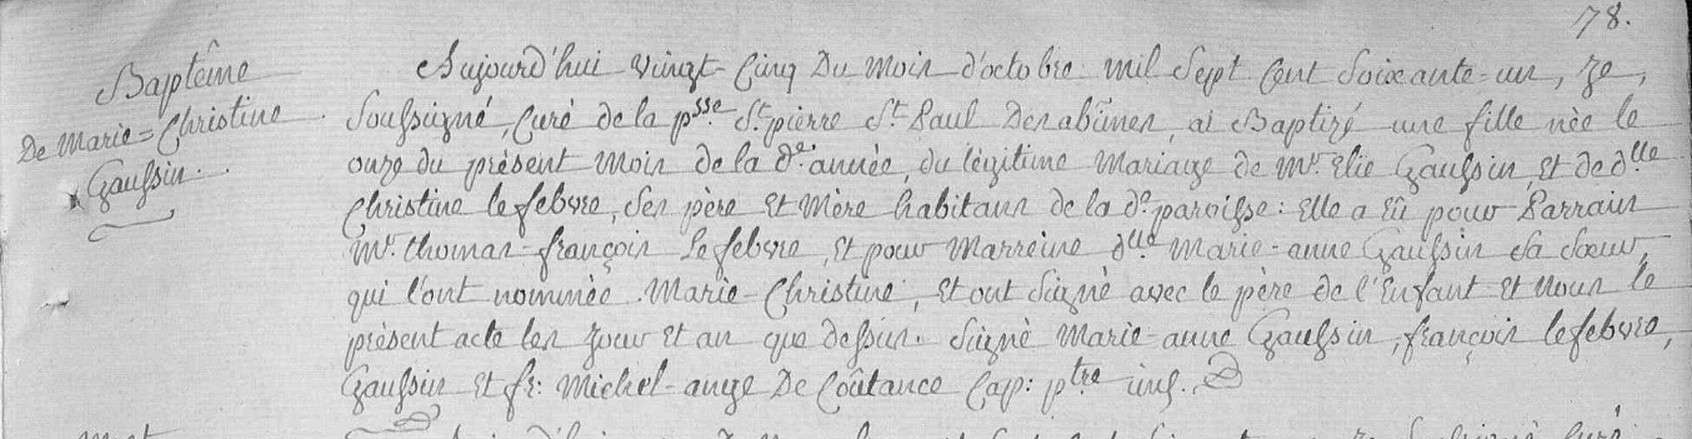 78.
Baptême
De Marie=Christine
Gaussin.
Aujourd'hui vingt-Cinq Du mois d'octobre mil Sept Cent Soixante-un, Je,
Soussigné, Curé de la psse. St. pierre St. Paul Des abîmes, ai Baptizé une fille née le
onze du présent mois de la de. année, du légitime Mariage de Mr. Elie Gaussin, Et de dlle
Christine le febvre, Ses père Et Mère habitans de la de. paroisse: Elle a Eû pour Parrain
Mr. thomas-françois Le febvre, Et pour Marreine dlle Marie-anne Gaussin Sa Soeur,
qui l'ont nommée Marie-Christine, Et ont Signé avec le père de l'Enfant Et Nous le
présent acte les Jour Et an que dessus. Signé Marie-anne Gaussin, françois le febvre,
Gaussin Et fr: Michel-ange De Coûtance Cap: ptre